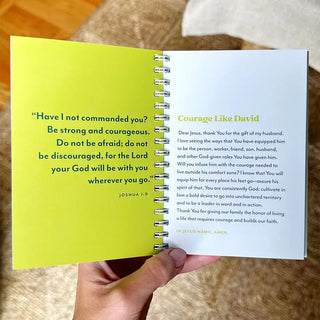 “Have I not commanded you?
Be strong and courageous.
Do not be afraid; do not
be discouraged, for the Lord
your God will be with you
wherever you go.”
JOSHUA 1:9
Courage Like David
Dear Jesus, thank You for the gift of my husband.
I love seeing the ways that You have equipped him
to be the person, worker, friend, son, husband,
and other God-given roles You have given him.
Will you infuse him with the courage needed to
live outside his comfort zone? I know that You will
equip him for every place his feet go—assure his
spirit of that. You are consistently God; cultivate in
him a bold desire to go into unchartered territory
and to be a leader in word and in action.
Thank You for giving our family the honor of living
a life that requires courage and builds our faith.
IN JESUS NAME, AMEN.